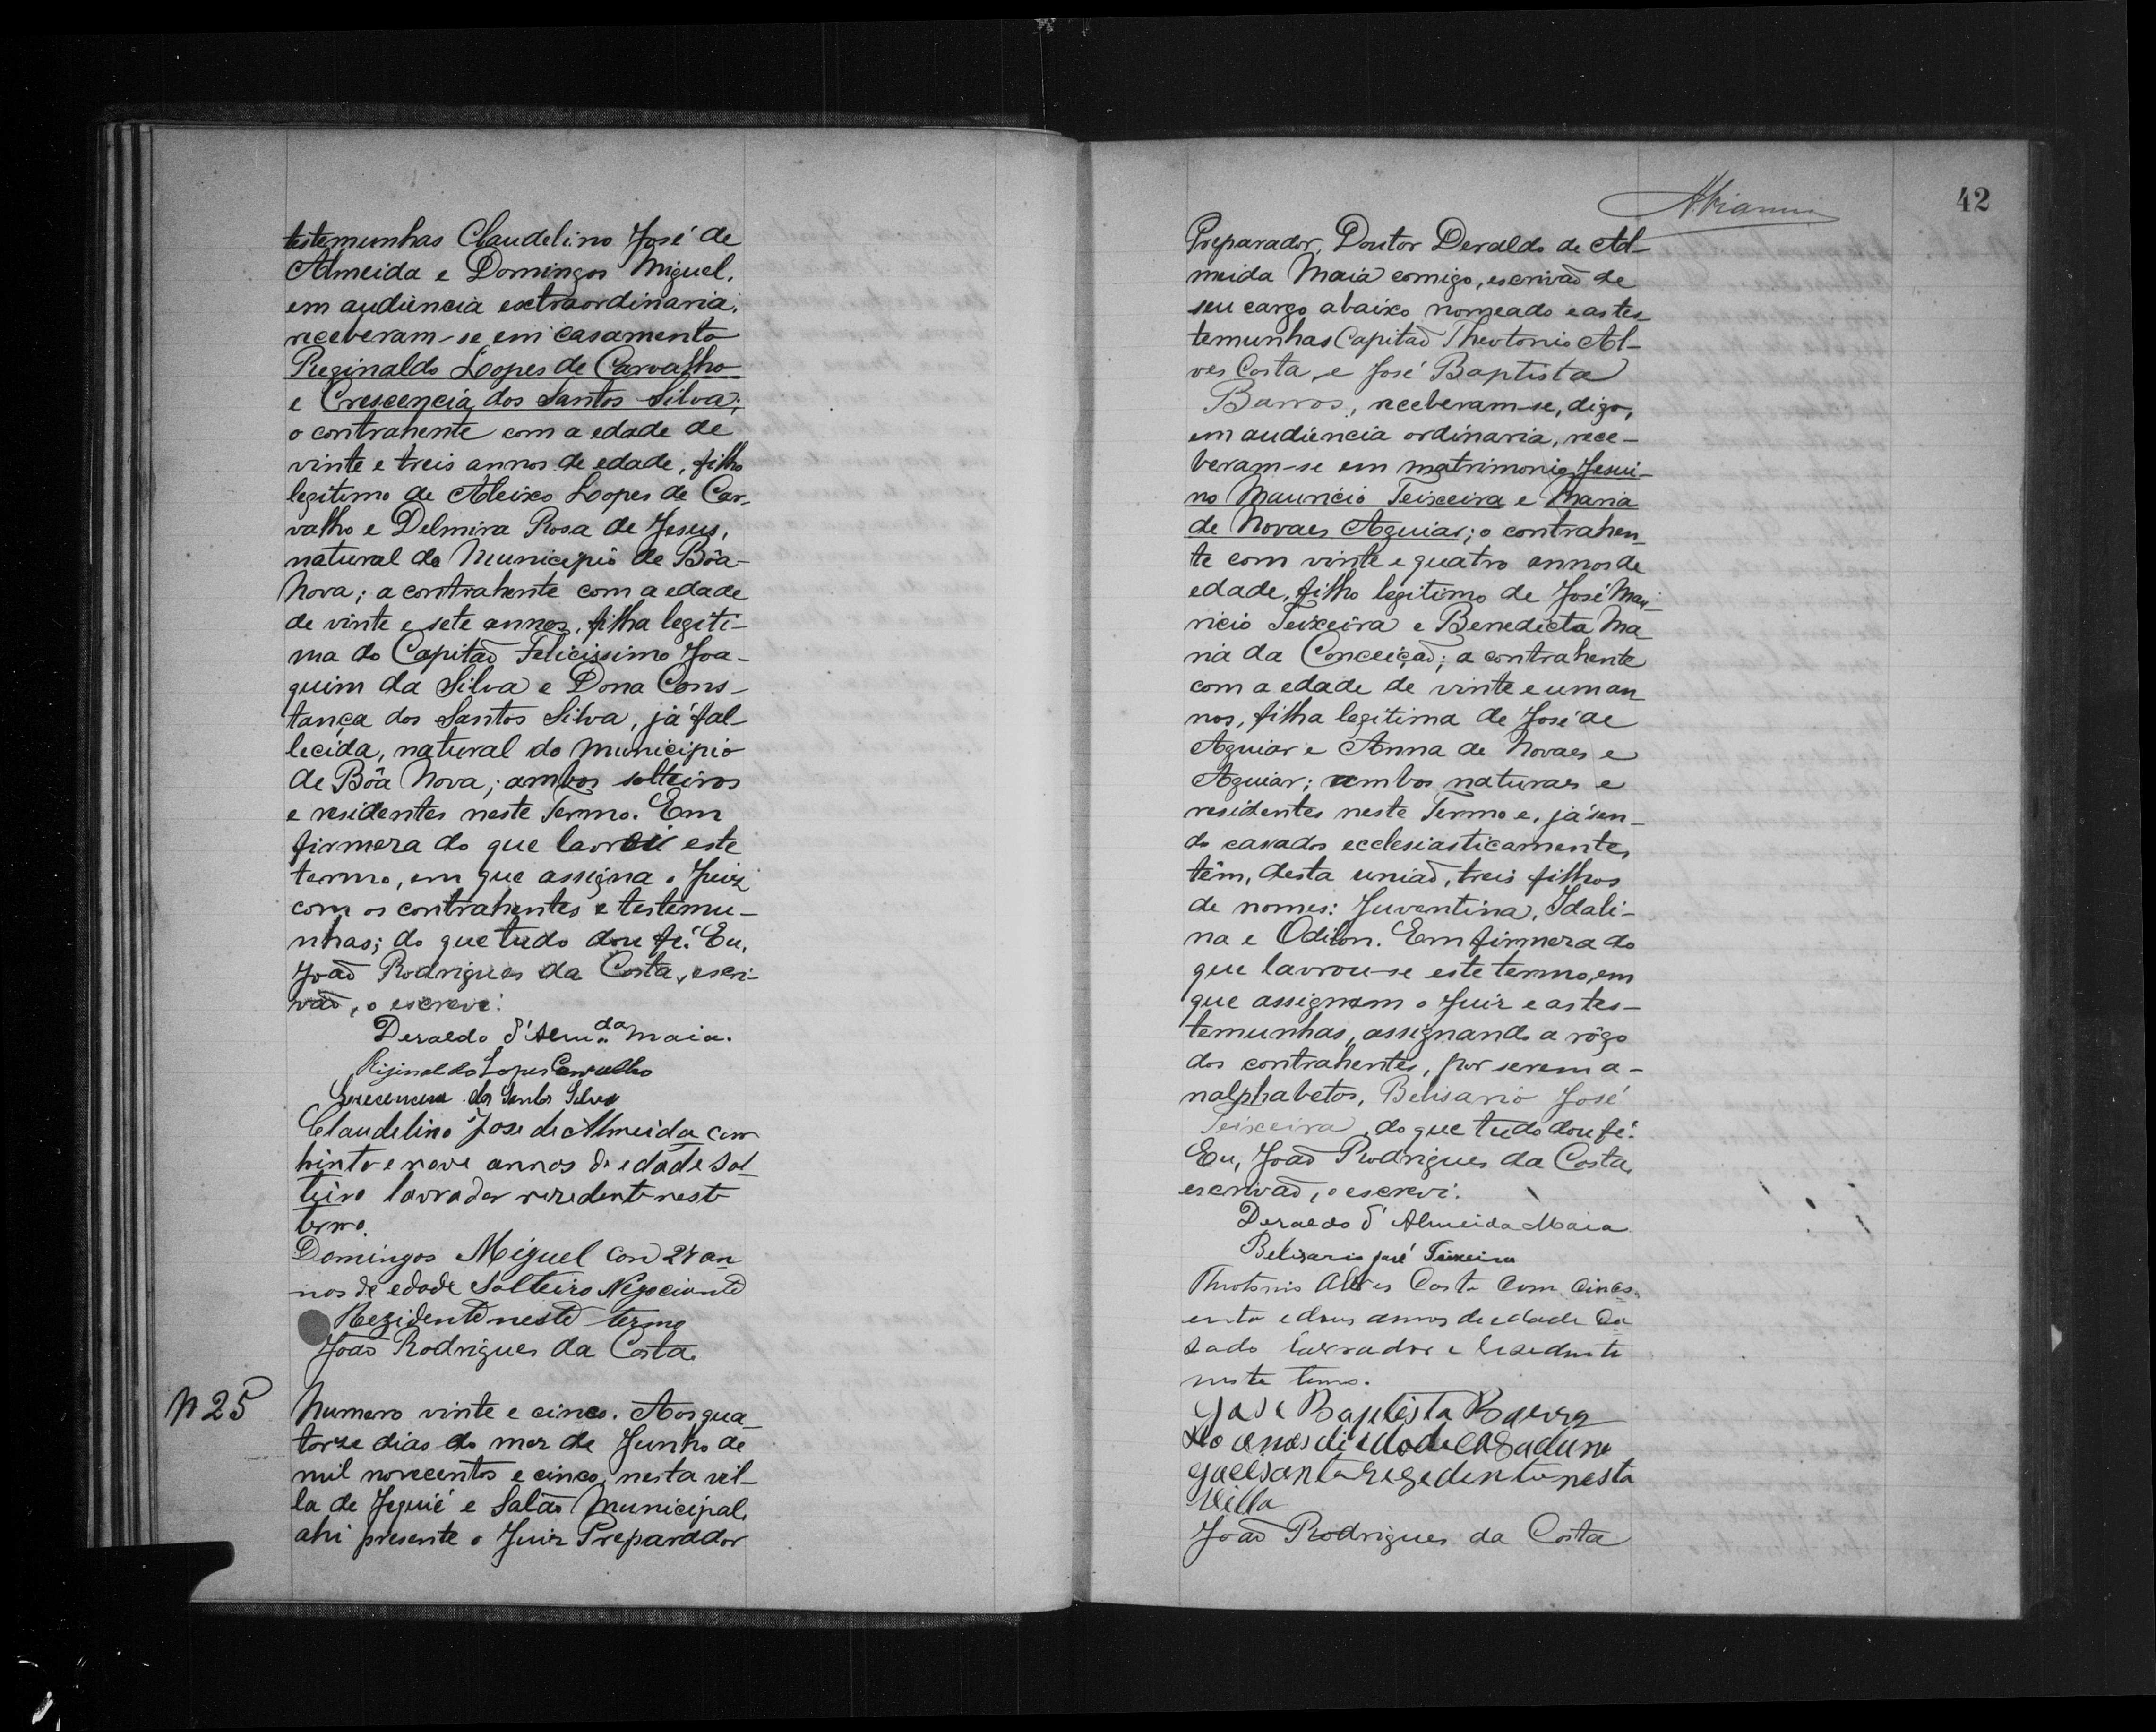 testemunhas Claudelino José de
Almeida e Domingos Miguel,
em audiencia extraordinaria,
receberam-se em casamento
Reginaldo Lopes de Carvalho
e Crescencia dos Santos Silva;
o contrahente com a edade de
vinte e treis annos de edade, filho
legitimo de Aleixo Lopes de Car-
valho e Delmira Rosa de Jesus,
natural do Municipio de Bôa-
Nova; a contrahente com a edade
de vinte e sete annos, filha legiti-
ma do Capitaõ Felicissimo Joa-
quim da Silva e Dona Cons-
tança dos Santos Silva, já fal-
lecida, natural do Municipio
de Bôa Nova; ambos solteiros
e residentes neste Termo. Em
firmeza do que lavrei este
termo, em que assigna o Juiz
com os contrahentes e testemu-
nhas; do que tudo dou fé. Eu,
Joaõ Rodrigues da Costa, escri-
vaõ, o escrevi.
Deraldo d'Almda Maia.
Riginaldo Lopes Carvalho
dos Santos Silva
Claudelino Jose de Almeida com
vinte e nove annos de edade sol
teiro lavrador rezedente neste
termo.
Domingos Miguel con 24 an
nos de edade Solteiro Negociante
Rezidente neste termo
Joaõ Rodrigues da Costa.
N 25
Numero vinte e cinco. Aos qua
torze dias do mez de Junho de
mil novecentos e cinco, nesta vil-
la de Jequié e Salão Municipal,
ahi presente o Juiz Preparador
42
Preparador, Doutor Deraldo de Al-
meida Maia comigo, escrivaõ de
seu cargo abaixo nomeado e as tes
temunhas Capitaõ Theotonio Al-
ves Costa e José Baptista
Barros, receberam-se, digo,
em audiencia ordinaria, rece-
beram-se em matrimonio Jesui-
no Mauricio Teixeira e Maria
de Novaes Aguiar; o contrahen
te com vinte e quatro annos de
edade, filho legitimo de José Mau-
ricio Teixeira e Benedicta Ma
ria da Conceiçaõ; a contrahente
com a edade de vinte e um an
nos, filha legitima de José de
Aguiar e Anna de Novaes e
Aguiar; ambos naturaes e
residentes neste Termo e, já sen-
do casados ecclesiasticamente,
têm, desta uniaõ, treis filhos
de nomes: Juventina, Idali-
na e Odilon. Em firmeza do
que lavrou-se este termo, em
que assignam o Juiz e as tes-
temunhas, assignando a rôgo
dos contrahentes, por serem a-
nalphabetos, Belisario José
Teixeira, do que tudo dou fé.
Eu, Joaõ Rodrigues da Costa,
escrivaõ, o escrevi.
Deraldo d'Almeida Maia
Belizario José Teixeira
Theotonio Alves Costa com cinco
enta e dous annos de edade Ca
zado lavrador e
neste termo.
José Baptista
annos di edade
nesta
Villa
Joaõ Rodrigues da Costa